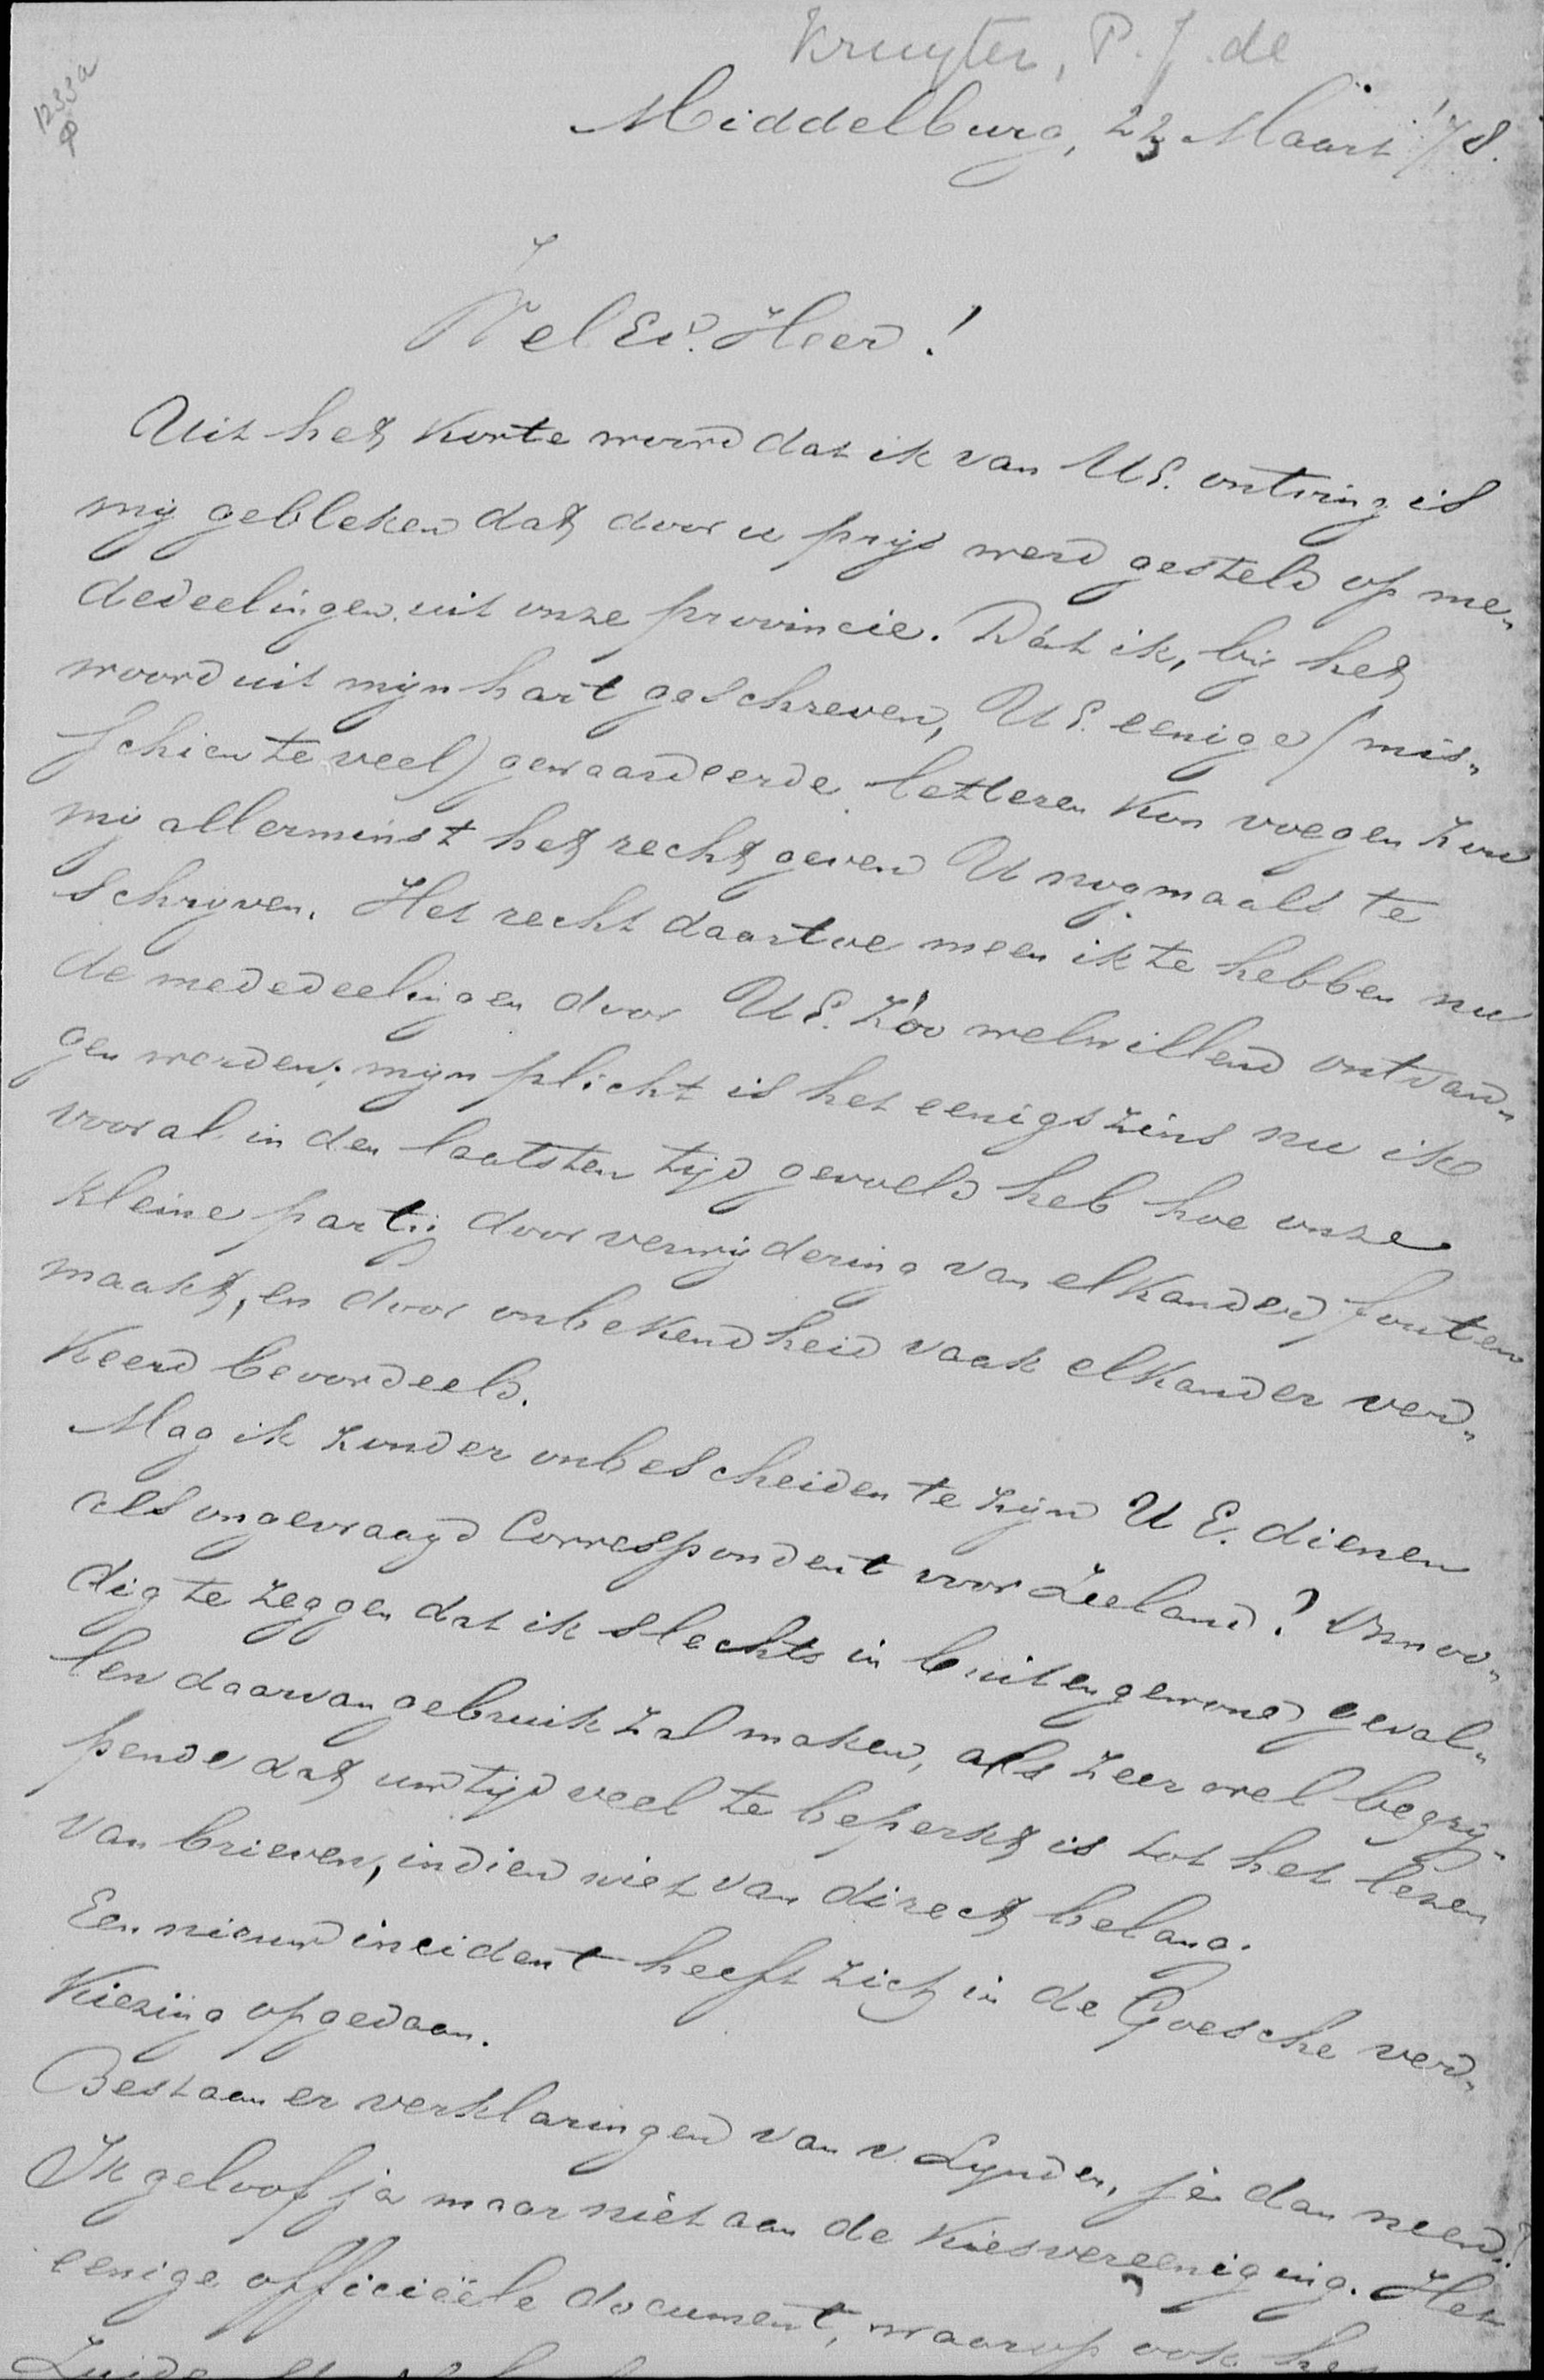 Kruyter, P. J. de
1233a
Middelburg, 23 Maart '78.
WelEd. Heer!
Uit het korte woord dat ik van UE. ontving is
mij gebleken dat door u prijs werd gesteld op me-
dedeelingen uit onze provincie. Dat ik, bij het
woord uit mijn hart geschreven, UE. eenige (mis-
schien te veel) gewaardeerde letteren kon voegen zou
mij allerminst het recht geven U nogmaals te
schrijven. Het recht daartoe meen ik te hebben nu
de mededeelingen door UE. zóó welwillend ontvan-
gen worden; mijn plicht is het eenigszins nu ik
vooral in den laatsten tijd gevoeld heb hoe onze
kleine partij door verwijdering van elkander fouten
maakt, en door onbekendheid vaak elkander ver-
keerd beoordeeld.
Mag ik zonder onbescheiden te zijn UE. dienen
als ongevraagd Correspondent voor Zeeland? Onnoo-
dig te zeggen dat ik slechts in buitengewone geval-
len daarvan gebruik zal maken, als zeer wel begrij-
pende dat uw tijd veel te beperkt is tot het lezen
van brieven, indien niet van direct belang.
Een nieuw incident heeft zich in de Goesche ver-
kiezing opgedaan.
Bestaan er verklaringen van v. Lynden, ja dan neen?
Ik geloof ja maar niet aan de Kiesvereeniging. Het
eenige officiëele document, waarop ook het